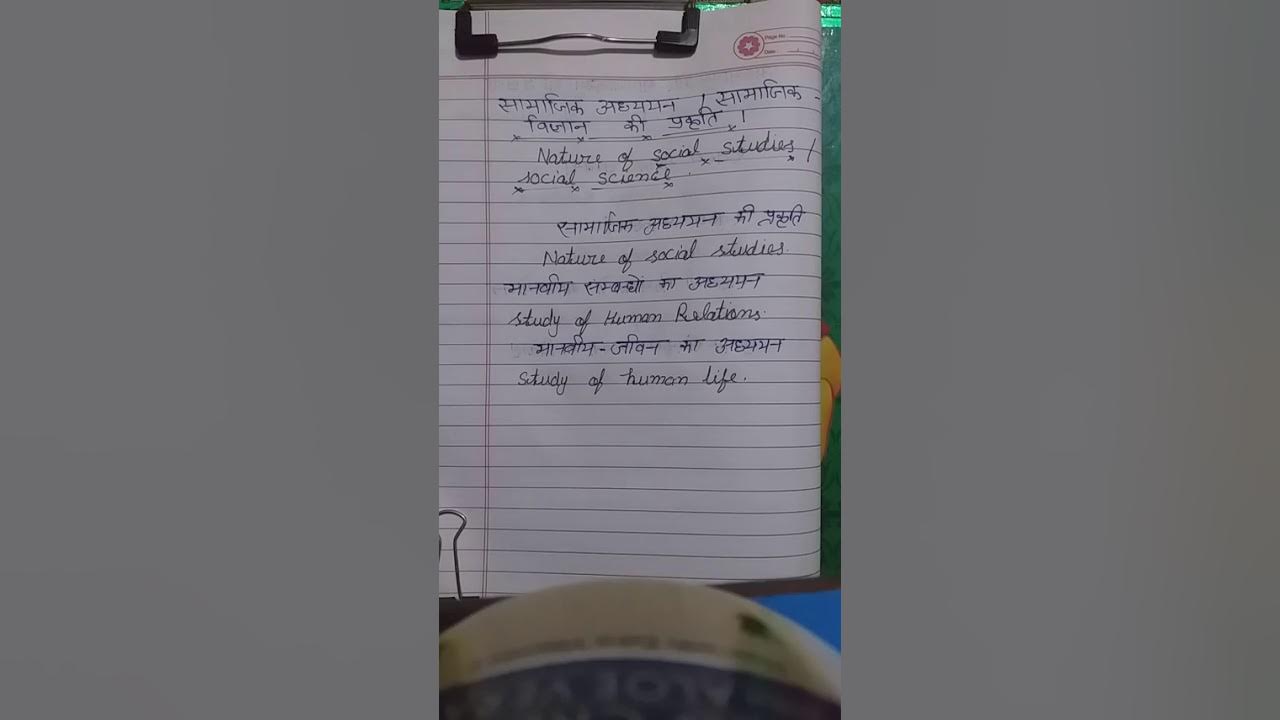 Page No.
Date
सामाजिक अध्ययन / सामाजिक -
विज्ञान की प्रकृति ।
Nature of social studies /
social science.
सामाजिक अध्ययन की प्रकृति
Nature of social studies.
मानवीय सम्बन्धों का अध्ययन
study of Human Relations.
मानवीय - जीवन का अध्ययन
study of human life.
ALOE VE